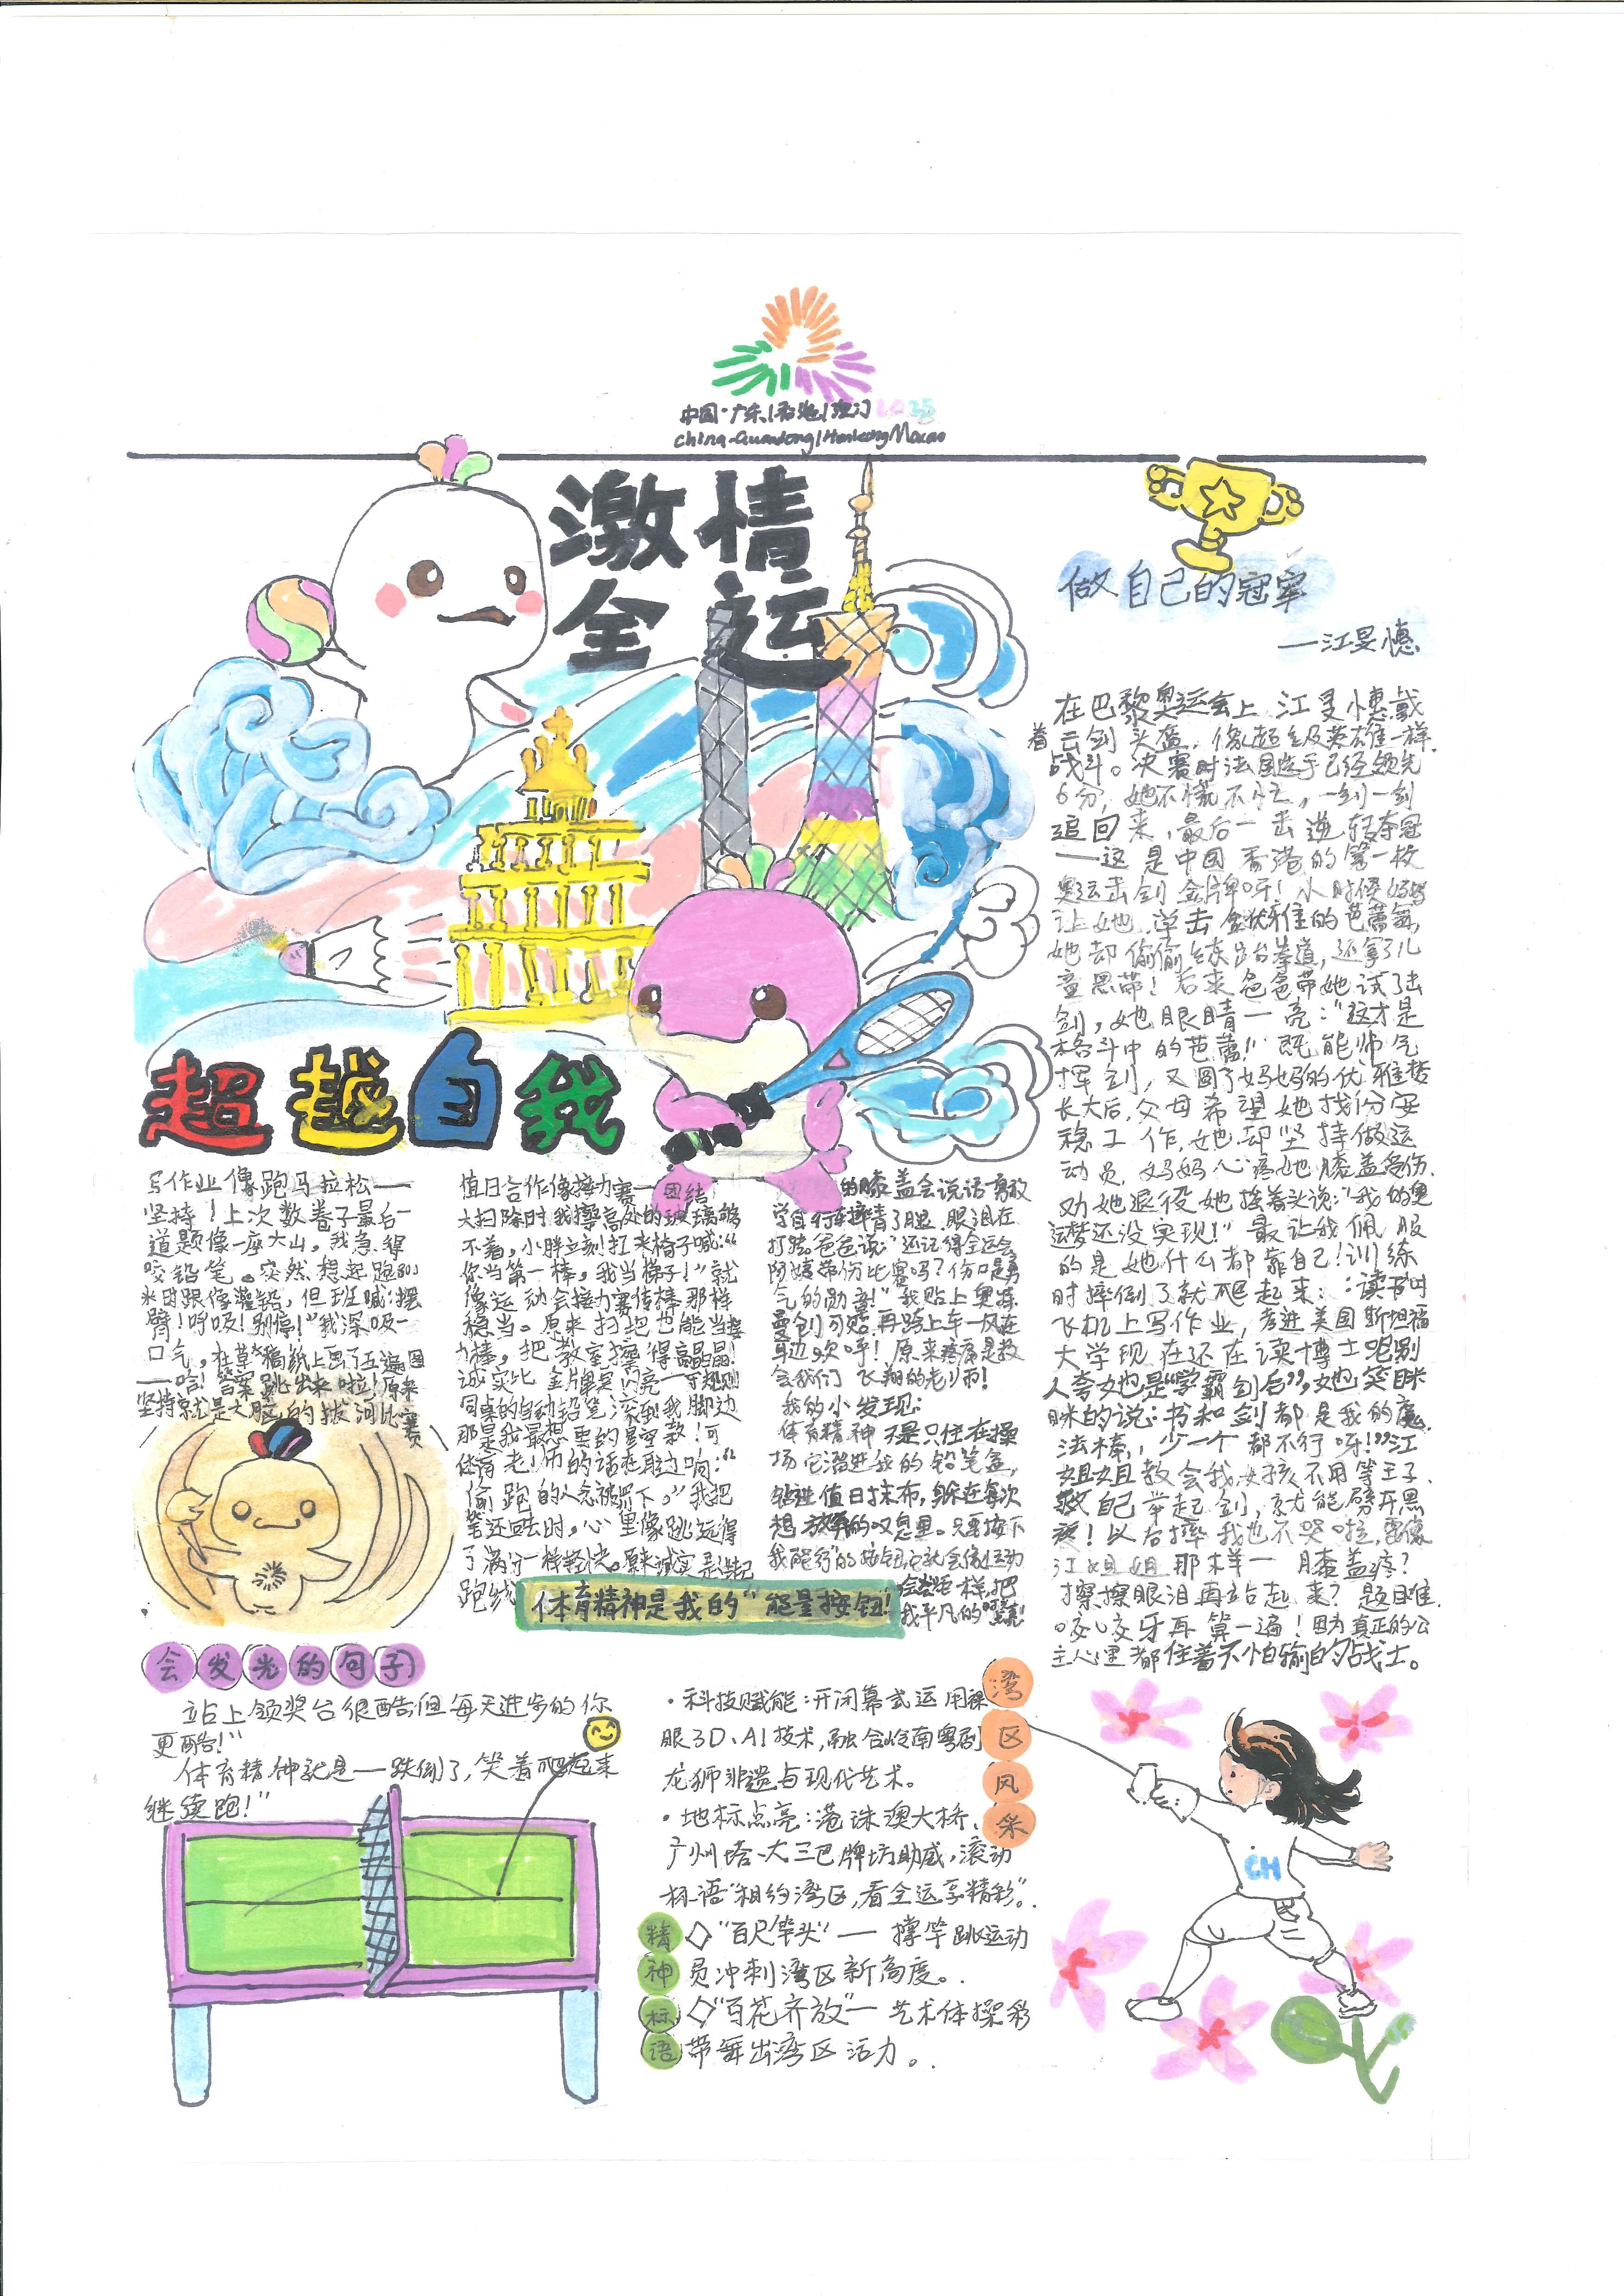 中国·广东|香港|澳门2025
China-Guangdong|HonKongMacao
激情
全运
超越自我
写作业像跑马拉松——
坚持！上次数卷子最后一
道题像一座大山，我急得
咬铅笔。突然想起跑步
时跟像灌铅，但班喊：摆
臂！呼吸！别停！”我深吸一
口气，在草稿纸上画了五遍图
——哈！答案跳出来啦！原来
坚持就是大脑的拔河比赛
值日合作像接力赛——团结
大扫除时，我擦高处的玻璃够
不着，小胖立刻扛来椅子喊：“
你当第一棒，我当梯子！”就
像运动会接力赛传棒那样
稳当。原来扫把也能当接
力棒，把教室擦得亮晶晶！
诚实比金牌更闪亮——守规则
同桌的自动铅笔滚到我脚边
那是我最想要的星空款！可
体育老师的话在耳边响：“
偷跑的人会被罚下。”我把
笔还回去时，心里像跳远得
了满分一样轻快。原来诚实是
跑线
的膝盖会说话 勇敢
学自行车摔青了腿，眼泪在
打转。爸爸说：“还记得全运会
阿姨带伤比赛吗？伤口是勇
气的勋章！”我贴上奥特
曼创可贴，再跨上车——风在
耳边欢呼！原来疼痛是教
会我们飞翔的老师！
我的小发现：
体育精神不是只住在操
场，它溜进我的铅笔盒，
钻进值日抹布，躲在每次
想放弃的叹息里。只要按下
“我能行”的按钮，它就会像运动
会 样，把
我平凡的
体育精神是我的“能量按钮！”
做自己的冠军
—江旻憓
在巴黎奥运会上，江旻憓戴
着击剑头盔，像超级英雄一样
战斗。决赛时法国选手已经领先
6分，她不慌不忙，一剑一剑
追回来，最后一击逆转夺冠
——这是中国香港的第一枚
奥运击剑金牌呀！小时候妈妈
让她 芭蕾舞，
她却偷偷练跆拳道，还拿了儿
童黑带！后来爸爸带她试了击
剑，她眼睛一亮：“这才是
格斗中的芭蕾！”既能帅气
挥剑，又圆了妈妈的优雅梦
长大后，父母希望她找份安
稳工作，她却坚持做运
动员，妈妈心疼她膝盖受伤，
劝她退役，她摇着头说：“我的奥
运梦还没实现！”最让我佩服
的是她什么都靠自己！训练
时摔倒了就爬起来：：读书时
飞机上写作业，考进美国斯坦福
大学现在还在读博士呢别
人夸她是“学霸剑后”，她笑眯
眯的说：书和剑都是我的魔
法棒，，少一个都不行呀！”江
姐姐教会我女孩不用等王子
救自己举起剑，就能劈开黑
夜！以后摔我也不哭啦，要像
江姐姐那样一膝盖疼？
擦擦眼泪再站起来？题目难
咬咬牙再算一遍！因为真正的公
主心里都住着不怕输的战士。
会发光的句子
站上领奖台很酷，但每天进步的你
更酷！”
体育精神就是——跌倒了，笑着爬起来
继续跑！”
湾区风采
·科技赋能：开闭幕式运用裸
眼3D、AI技术，融合岭南粤剧
龙狮非遗与现代艺术。
·地标点亮：港珠澳大桥、
广州塔、大三巴牌坊助威，滚动
标语“相约湾区，看全运享精彩”。
精神标语
◇“百尺竿头”— 撑竿跳运动
员冲刺湾区新高度。
◇“百花齐放”— 艺术体操彩
带舞出湾区活力。
CH